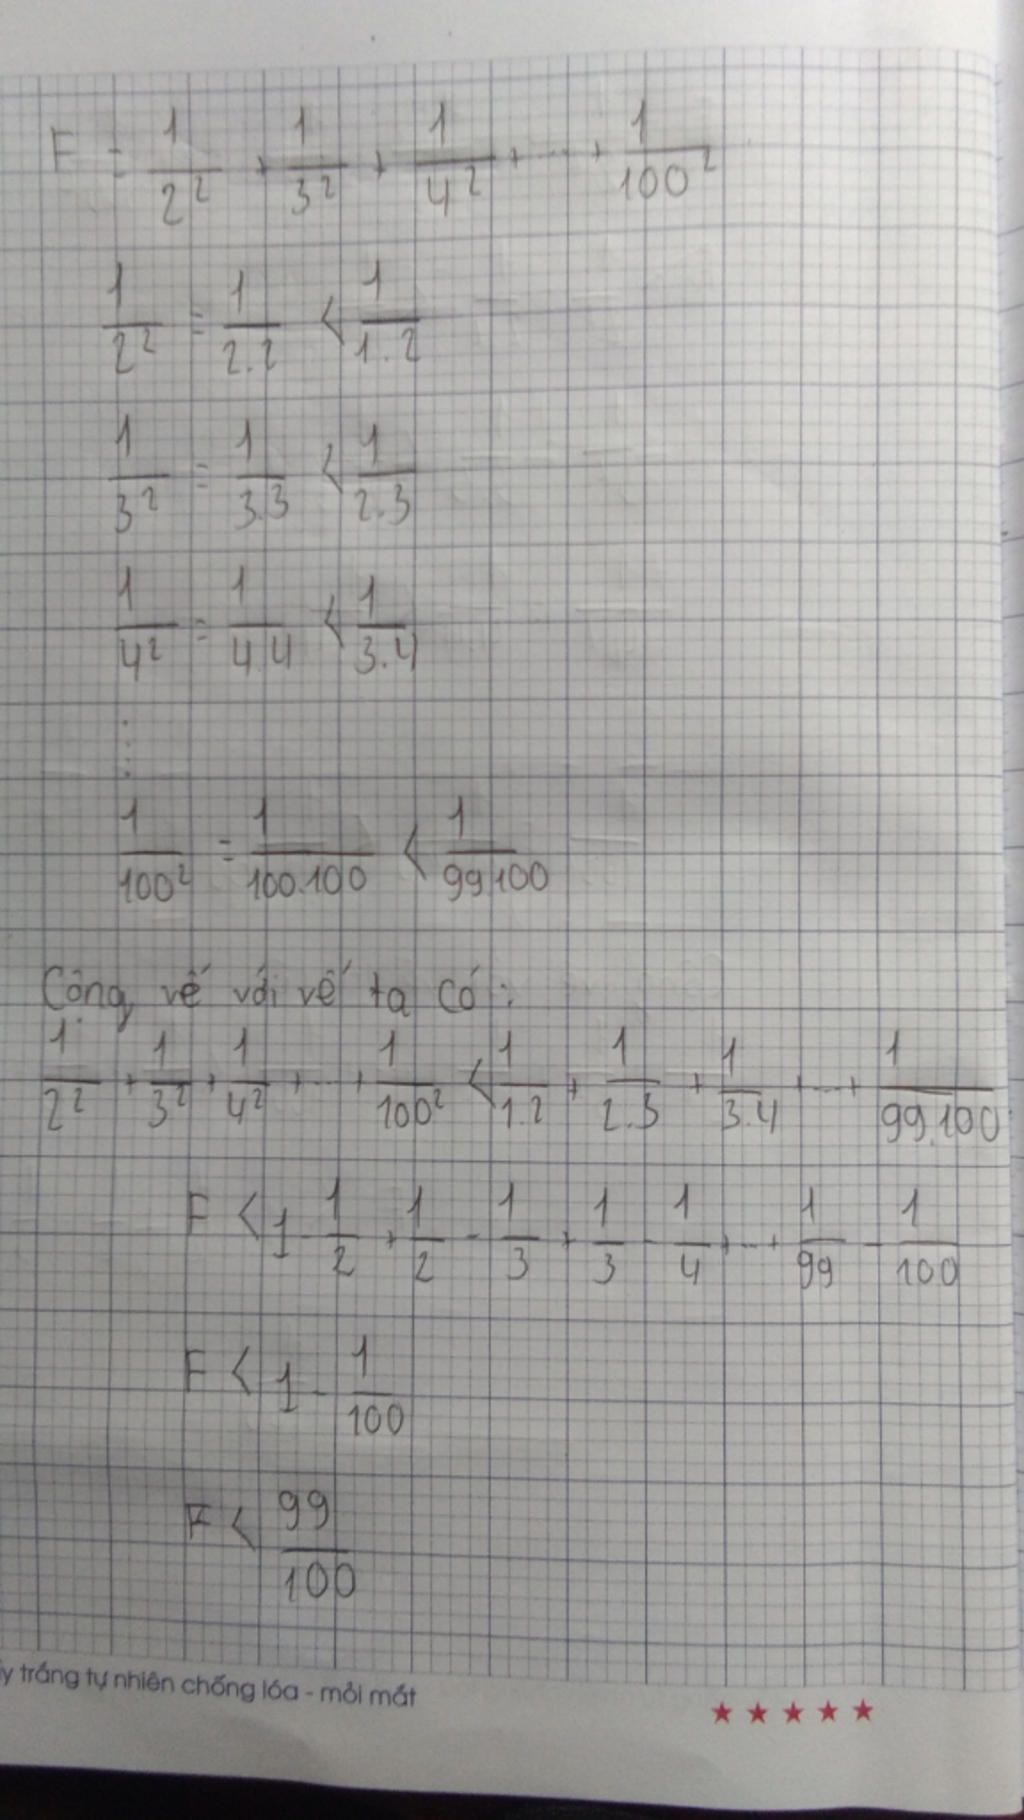 F = 1/2² + 1/3² + 1/4² + ... + 1/100²
1/2² = 1/2.2 < 1/1.2
1/3² = 1/3.3 < 1/2.3
1/4² = 1/4.4 < 1/3.4
⋮
1/100² = 1/100.100 < 1/99.100
Cộng vế với vế ta có:
1/2² + 1/3² + 1/4² + ... + 1/100² < 1/1.2 + 1/2.3 + 1/3.4 + ... + 1/99.100
F < 1 - 1/2 + 1/2 - 1/3 + 1/3 - 1/4 + ... + 1/99 - 1/100
F < 1 - 1/100
F < 99/100
trắng tự nhiên chống lóa - mỏi mắt